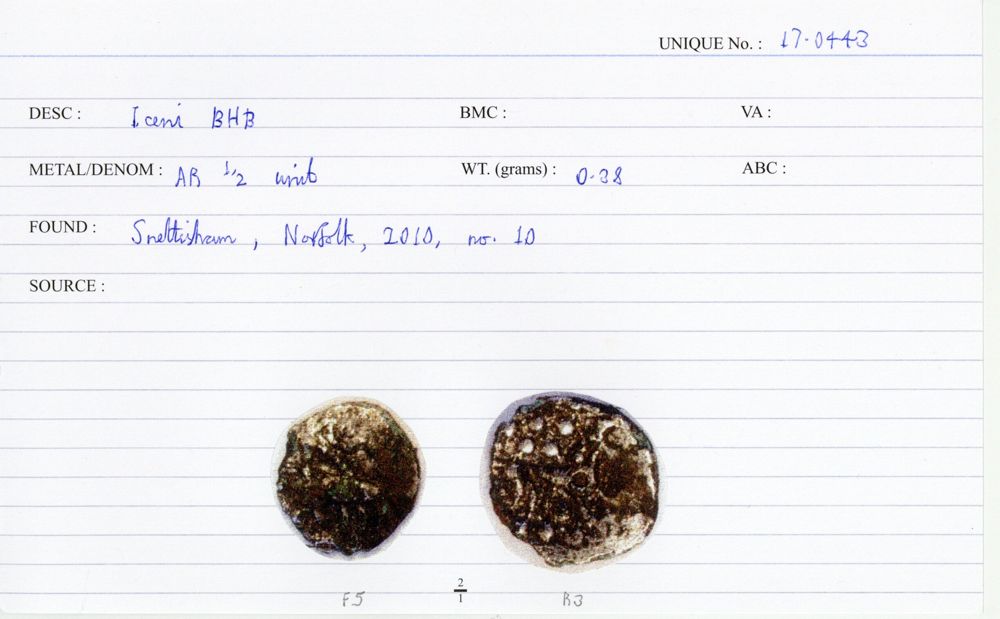 UNIQUE No. : 17-0443
DESC : Iceni BHB BMC : VA :
METAL/DENOM : AR 1/2 unit WT. (grams) : 0.38 ABC :
FOUND : Snettisham, Norfolk, 2010, no. 10
SOURCE :
2
F5 1 R3